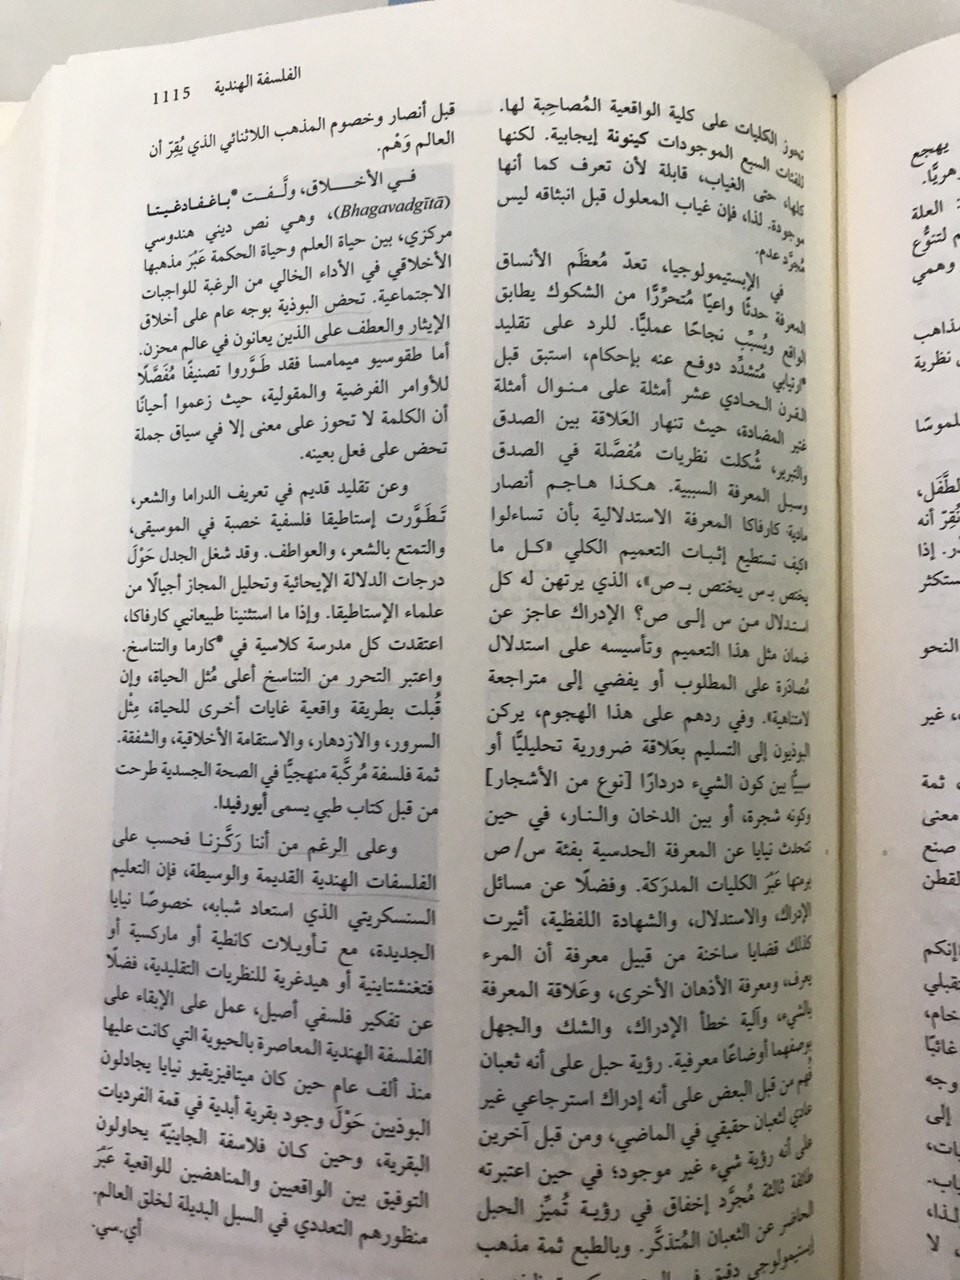 الفلسفة الهندية 1115
تحوز الكليات على كلية الواقعية المُصاحِبة لها.
للفئات السبع الموجودات كينونة إيجابية. لكنها
كلها، حتى الغياب، قابلة لأن تعرف كما أنها
موجودة. لذا، فإن غياب المعلول قبل انبثاقه ليس
مُجرَّد عدم.
في الإبستيمولوجيا، تعدّ مُعظَم الأنساق
المعرفة حدثًا واعيًا مُتحرِّرًا من الشكوك يطابق
الواقع ويُسبِّب نجاحًا عمليًّا. للرد على تقليد
*ارتيابي مُتشدِّد دوفع عنه بإحكام، استبق قبل
القرن الحادي عشر أمثلة على منوال أمثلة
غتير المضادة، حيث تنهار العَلاقة بين الصدق
والتبرير، شُكلت نظريات مُفصَّلة في الصدق
وسبل المعرفة السببية. هكذا هاجم أنصار
مادية كارفاكا المعرفة الاستدلالية بأن تساءلوا
«كيف تستطيع إثبات التعميم الكلي «كل ما
يختص بـ س يختص بـ ص»، الذي يرتهن له كل
استدلال من س إلى ص؟ الإدراك عاجز عن
ضمان مثل هذا التعميم وتأسيسه على استدلال
مُصادَرة على المطلوب أو يفضي إلى متراجعة
لامتناهية». وفي ردهم على هذا الهجوم، يركن
البوذيون إلى التسليم بعَلاقة ضرورية تحليليًّا أو
سببيًّا بين كون الشيء دردارًا [نوع من الأشجار]
وكونه شجرة، أو بين الدخان والنار، في حين
تتحدث نيايا عن المعرفة الحدسية بفئة س/ ص
برمتها عَبْرَ الكليات المدرَكة. وفضلًا عن مسائل
الإدراك، والاستدلال، والشهادة اللفظية، أثيرت
كذلك قضايا ساخنة من قبيل معرفة أن المرء
يعرف، ومعرفة الأذهان الأخرى، وعَلاقة المعرفة
بالشيء، وآلية خطأ الإدراك، والشك والجهل
بوصفهما أوضاعًا معرفية. رؤية حبل على أنه ثعبان
فُهم من قبل البعض على أنه إدراك استرجاعي غير
عادي لثعبان حقيقي في الماضي، ومن قبل آخرين
على أنه رؤية شيء غير موجود؛ في حين اعتبرته
طائفة ثالثة مُجرَّد إخفاق في رؤية تُميِّز الحبل
الحاضر عن الثعبان المُتذكَّر. وبالطبع ثمة مذهب
إبستيمولوجي دقيق في
قبل أنصار وخصوم المذهب اللاثنائي الذي يُقِرّ أن
العالم وَهْم.
في الأخلاق، ولَّفت *باغفادغيتا
(Bhagavadgītā)، وهي نص ديني هندوسي
مركزي، بين حياة العلم وحياة الحكمة عَبْرَ مذهبها
الأخلاقي في الأداء الخالي من الرغبة للواجبات
الاجتماعية. تحض البوذية بوجه عام على أخلاق
الإيثار والعطف على الذين يعانون في عالم محزن.
أما طقوسيو ميمامسا فقد طَوَّروا تصنيفًا مُفَصَّلًا
للأوامر الفرضية والمقولية، حيث زعموا أحيانًا
أن الكلمة لا تحوز على معنى إلا في سياق جملة
تحض على فعل بعينه.
وعن تقليد قديم في تعريف الدراما والشعر،
تَطَوَّرت إستاطيقا فلسفية خصبة في الموسيقى،
والتمتع بالشعر، والعواطف. وقد شغل الجدل حَوْلَ
درجات الدلالة الإيحائية وتحليل المجاز أجيالًا من
علماء الإستاطيقا. وإذا ما استثنينا طبيعانيي كارفاكا،
اعتقدت كل مدرسة كلاسية في *كارما والتناسخ.
واعتبر التحرر من التناسخ أعلى مُثل الحياة، وإن
قُبلت بطريقة واقعية غايات أخرى للحياة، مِثْل
السرور، والازدهار، والاستقامة الأخلاقية، والشفقة.
ثمة فلسفة مُركَّبة منهجيًّا في الصحة الجسدية طرحت
من قبل كتاب طبي يسمى أيورفيدا.
وعلى الرغم من أننا رَكَّزنا فحسب على
الفلسفات الهندية القديمة والوسيطة، فإن التعليم
السنسكريتي الذي استعاد شبابه، خصوصًا نيايا
الجديدة، مع تأويلات كانطية أو ماركسية أو
فتغنشتاينية أو هيدغرية للنظريات التقليدية، فضلًا
عن تفكير فلسفي أصيل، عمل على الإبقاء على
الفلسفة الهندية المعاصرة بالحيوية التي كانت عليها
منذ ألف عام حين كان ميتافيزيقيو نيايا يجادلون
البوذيين حَوْلَ وجود بقرية أبدية في قمة الفرديات
البقرية، وحين كان فلاسفة الجاينيّة يحاولون
التوفيق بين الواقعيين والمناهضين للواقعية عَبْرَ
منظورهم التعددي في السبل البديلة لخلق العالم.
أي.سي.
يهجع
العلة
م لتنوُّع
وهمي
نظرية
الطَّفَل،
نُقِرّ أنه
إذا
النحو
غير
ثمة
معنى
صنع
القطن
غائبًا
وجه
إلى
لذا،
لا